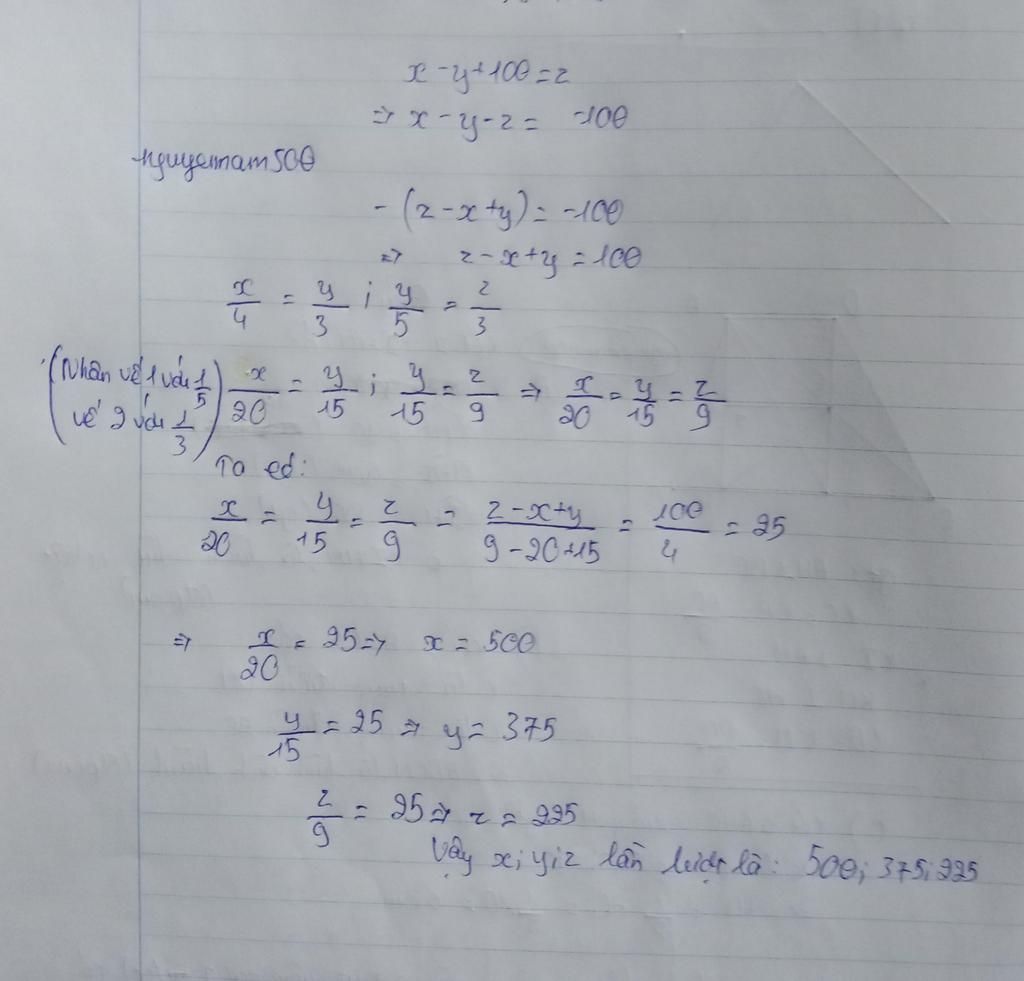 x - y + 100 = z
⇒ x - y - z = -100
nguyennam500
- (z - x + y) = -100
⇒ z - x + y = 100
x/4 = y/3 ; y/5 = z/3
(Nhân vế 1 với 1/5 vế 2 với 1/3) x/20 = y/15 ; y/15 = z/9 ⇒ x/20 = y/15 = z/9
Ta có:
x/20 = y/15 = z/9 = (z - x + y)/(9 - 20 + 15) = 100/4 = 25
⇒ x/20 = 25 ⇒ x = 500
y/15 = 25 ⇒ y = 375
z/9 = 25 ⇒ z = 225
Vậy x; y; z lần lượt là: 500; 375; 225